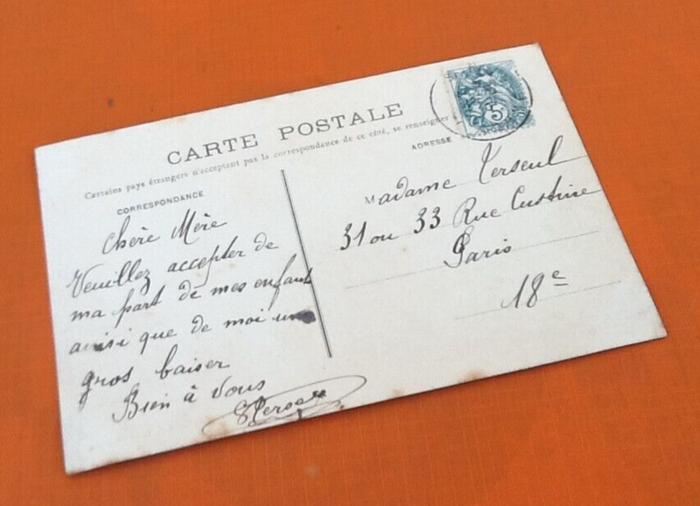 CARTE POSTALE
Certains pays étrangers n'acceptant pas la correspondance de ce côté, se renseigner
CORRESPONDANCE
Chère Mère
Veuillez accepter de
ma part de mes enfants
ainsi que de moi un
gros baiser
Bien à Vous
ADRESSE
Madame Verseul
31 ou 33 Rue Custine
Paris
18e
5